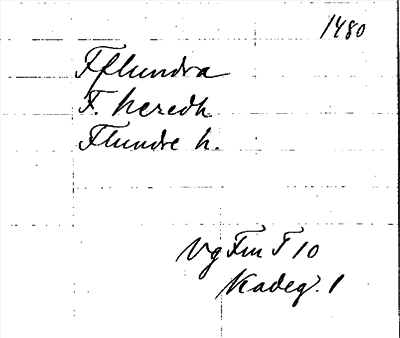 1480
Fflundra
F. heredh
Flundre h.
Vg Fm F 10
Kadeg. 1